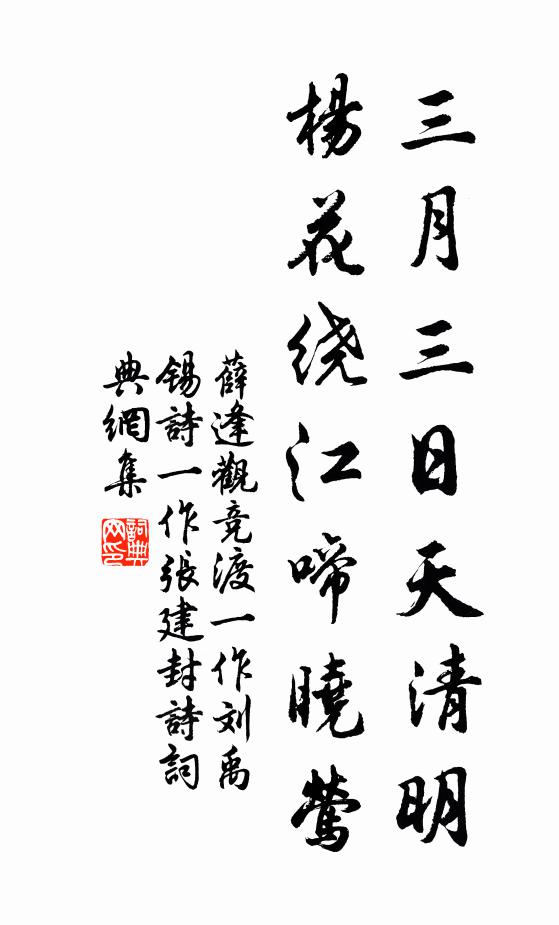 三月三日天清明
楊花绕江啼曉鶯
薛逢觀竞渡一作刘禹
锡詩一作張建封詩詞
典網集
詞典
网印